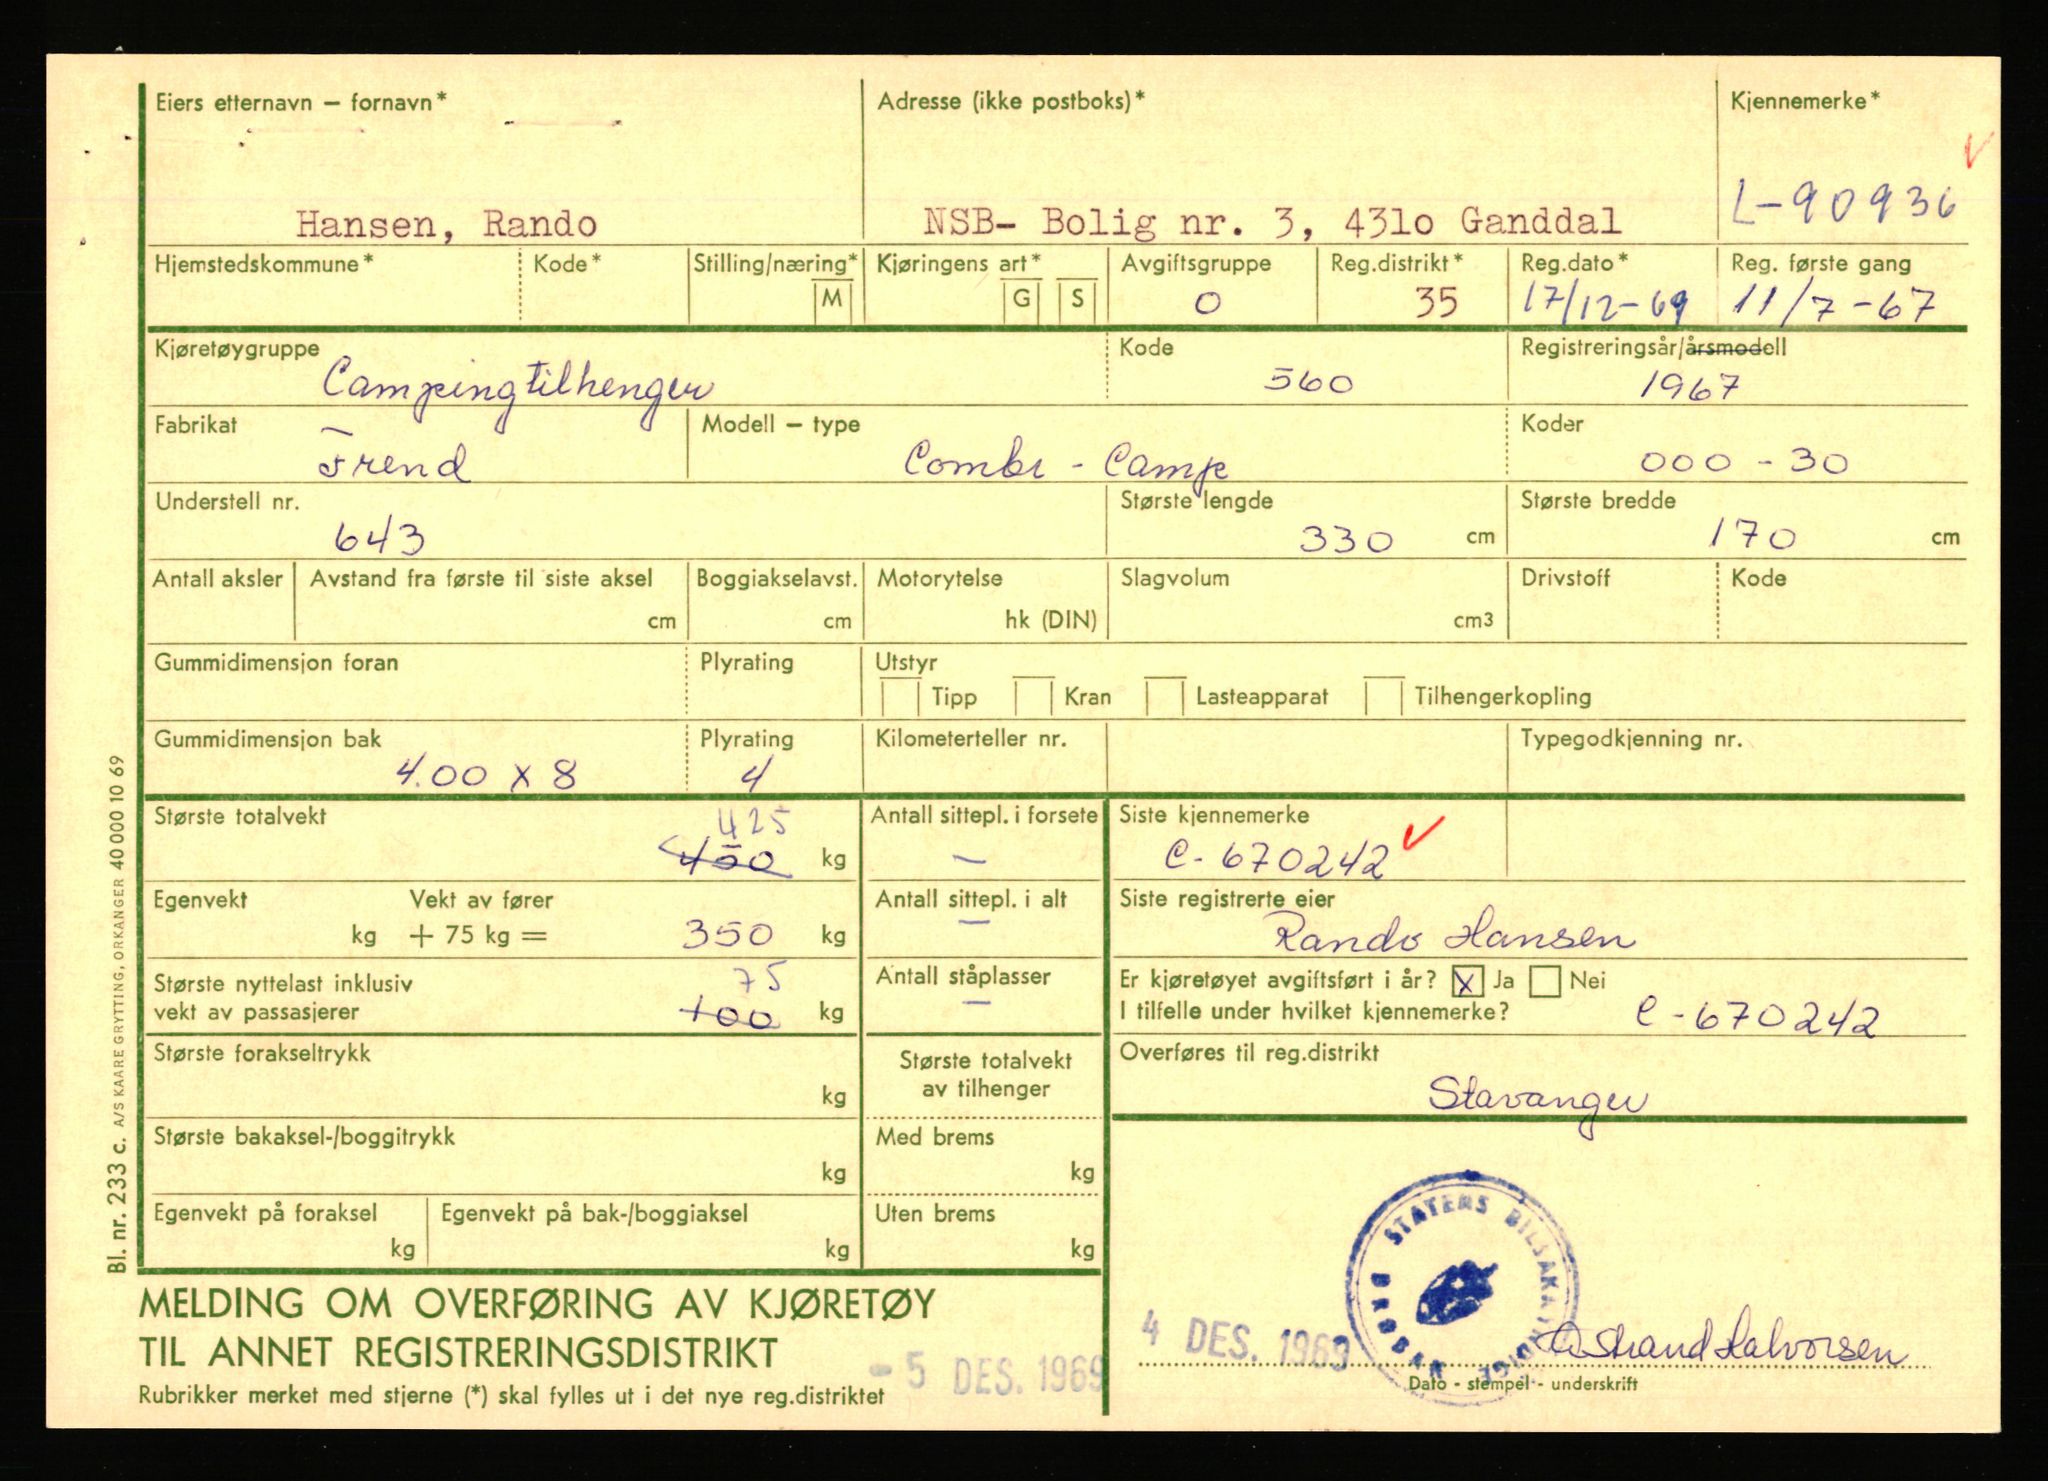 Eiers etternavn – fornavn* Adresse (ikke postboks)* Kjennemerke*
Hansen, Rando NSB- Bolig nr. 3, 431o Ganddal L-90936
Hjemstedskommune* Kode* Stilling/næring* Kjøringens art* Avgiftsgruppe Reg.distrikt* Reg.dato* Reg. første gang
M G S 0 35 17/12-69 11/7-67
Kjøretøygruppe Kode Registreringsår/årsmodell
Campingtilhenger 560 1967
Fabrikat Modell – type Koder
Trend Combi - Camp 000 - 30
Understell nr. Største lengde Største bredde
643 330 cm 170 cm
Antall aksler Avstand fra første til siste aksel Boggiakselavst. Motorytelse Slagvolum Drivstoff Kode
cm cm hk (DIN) cm3
Gummidimensjon foran Plyrating Utstyr
Tipp Kran Lasteapparat Tilhengerkopling
Gummidimensjon bak Plyrating Kilometerteller nr. Typegodkjenning nr.
4.00 x 8 4
Største totalvekt 425 Antall sittepl. i forsete Siste kjennemerke
450 kg – C-670242
Egenvekt Vekt av fører Antall sittepl. i alt Siste registrerte eier
kg + 75 kg = 350 kg – Rando Hansen
Største nyttelast inklusiv 75 Antall ståplasser Er kjøretøyet avgiftsført i år? X Ja Nei
vekt av passasjerer 100 kg – I tilfelle under hvilket kjennemerke? C-670242
Største forakseltrykk Største totalvekt Overføres til reg.distrikt
kg av tilhenger Stavanger
Største bakaksel-/boggitrykk Med brems
kg kg
Egenvekt på foraksel Egenvekt på bak-/boggiaksel Uten brems
kg kg kg
STATENS BILSAKKYNDIGE
MELDING OM OVERFØRING AV KJØRETØY
TIL ANNET REGISTRERINGSDISTRIKT
4 DES. 1969 Halvorsen
- 5 DES. 1969
Dato - stempel - underskrift
Rubrikker merket med stjerne (*) skal fylles ut i det nye reg.distriktet
Bl. nr. 233 c. A/S KAARE GRYTTING, ORKANGER 40 000 10 69